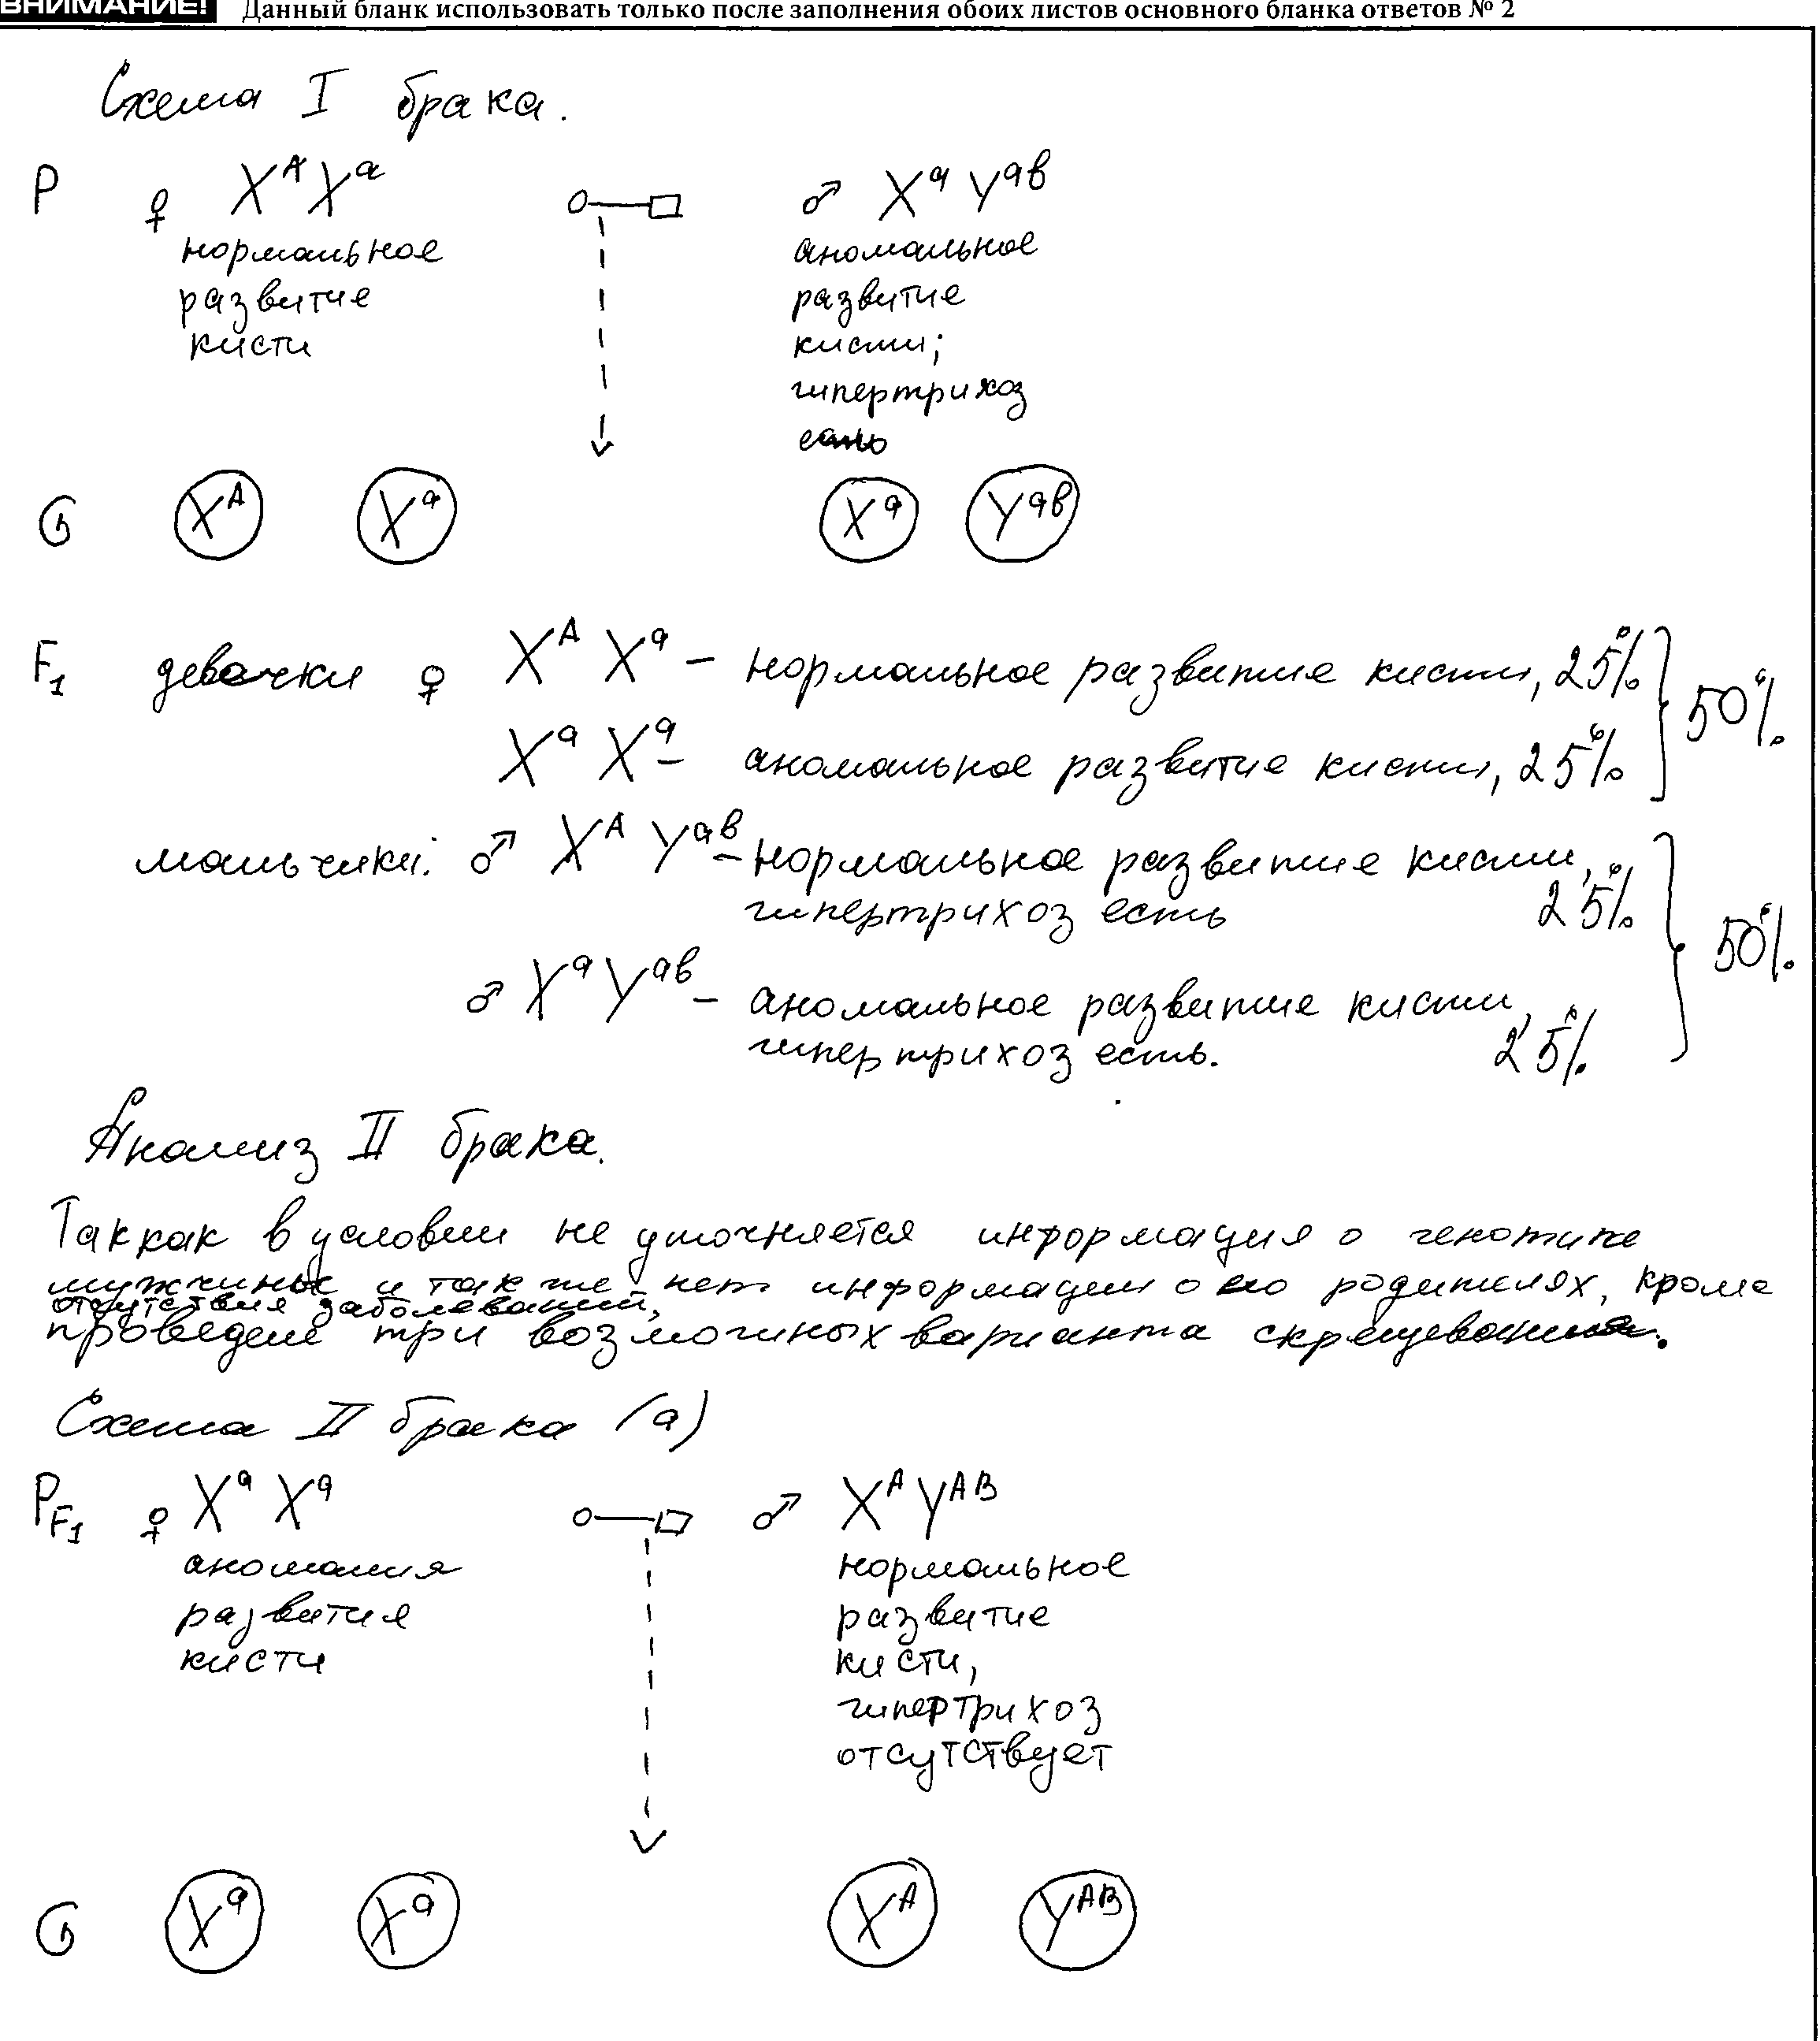 ВНИМАНИЕ! Данный бланк использовать только после заполнения обоих листов основного бланка ответов № 2
Схема I брака.
P ♀ XᴬXᵃ ♂ XᵃYᵃᵇ
нормальное аномальное
развитие развитие
кисти кисти;
гипертрихоз
есть
G Xᴬ Xᵃ Xᵃ Yᵃᵇ
F₁ девочки ♀ Xᴬ Xᵃ – нормальное развитие кисти, 25% } 50%
Xᵃ Xᵃ – аномальное развитие кисти, 25%
мальчики: ♂ Xᴬ Yᵃᵇ – нормальное развитие кисти,
гипертрихоз есть 25% } 50%
♂ Xᵃ Yᵃᵇ – аномальное развитие кисти,
гипертрихоз есть. 25%
Анализ II брака.
Так как в условии не уточняется информация о генотипе
мужчины и так же нет информации о его родителях, кроме
отсутствия заболеваний,
проведем три возможных варианта скрещивания.
Схема II брака (а)
P_F₁ ♀ Xᵃ Xᵃ ♂ XᴬYᴬᴮ
аномалия нормальное
развития развитие
кисти кисти,
гипертрихоз
отсутствует
G Xᵃ Xᵃ Xᴬ Yᴬᴮ